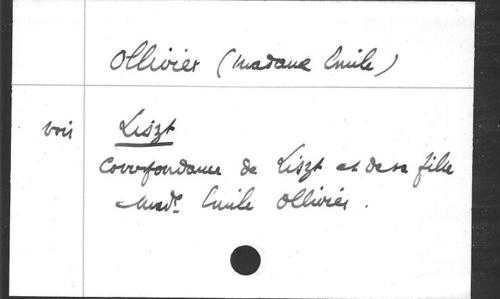 Ollivier (Madame Emile)
voir Liszt
Correspondance de Liszt et de sa fille
Made Emile Ollivier.